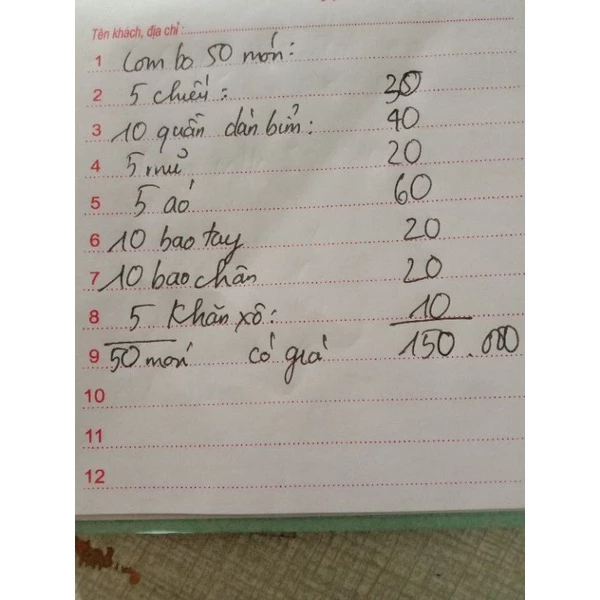 Tên khách, địa chỉ:
1 Com bo 50 món:
2 5 chiếu:
3 10 quần dán bỉm: 40
4 5 mũ 20
5 5 áo 60
6 10 bao tay 20
7 10 bao chân 20
8 5 Khăn xô: 10
9 50 món có giá 150.000
10
11
12